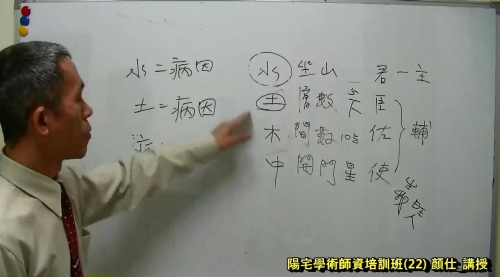 水=病因
土=病因
水 坐山 君一主
土 層數 5 臣
木 間數 10 佐 輔
中 開門 星 使
陽宅學術師資培訓班(22) 顏仕 講授